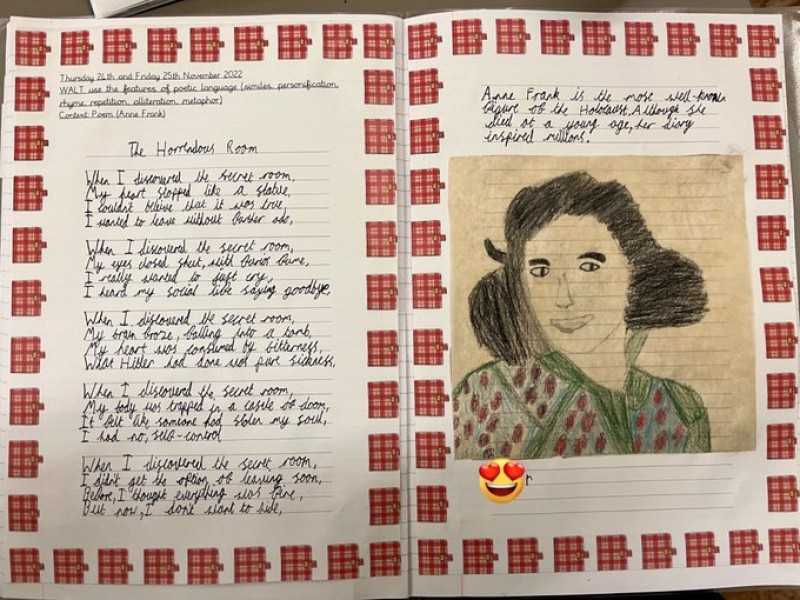 Thursday 24th and Friday 25th November 2022
WALT: use the features of poetic language (similes, personification,
rhyme, repetition, alliteration, metaphor)
Context: Poem (Anne Frank)
The Horrendous Room
When I discovered the secret room,
My heart stopped like a statue,
I couldn't bleive that it was true,
I wanted to leave without further ado,
When I discovered the secret room,
My eyes closed shut, with
I really wanted to just cry,
I heard my social life saying goodbye,
When I discovered the secret room,
My brain froze, falling into a tomb,
My heart was consumed by bitterness,
What Hitler had done was pure sickness,
When I discovered the secret room,
My body was trapped in a castle of doom,
It felt like someone had stolen my soul,
I had no, self-control
When I discovered the secret room,
I didn't get the option of leaving soon,
Before, I thought everything was fine,
But now, I don't want to hide,
Anne Frank is the most well-known
figure of the Holocaust. Although she
died at a young age, her diary
inspired millions.